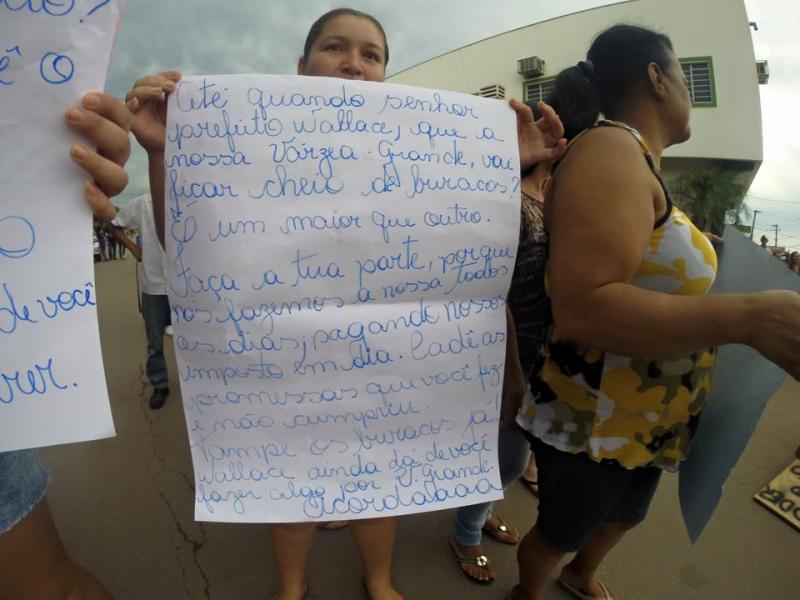 ê o
O
de você
rer.
Até quando senhor
prefeito Wallace, que a
nossa Várzea-Grande, vai
ficar cheio de buracos?
É um maior que outro.
Faça a tua parte, porque
nós fazemos a nossa todos
os dias, pagando nossos
imposto em dia. Cadê as
promessas que você fez
e não cumpriu.
Tampe os buracos já!
Wallace ainda dá de você
fazer algo por V. Grande.
Acordaaaa